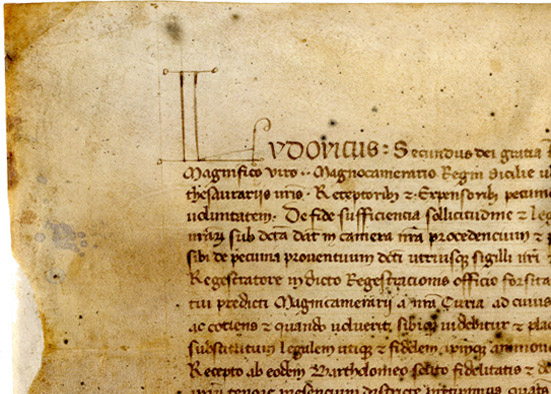 LVDOVICUS : Secundus dei gratia
Magnifico viro .. Magnocamerario Regni Sicilie
thesaurariis nris . Receptorib; z Expensorib; pecun
voluntatem . De fide sufficiencia sollicitudine z leg
sub dat in camera nra procedencium z
sibi de pecunia proventuum utriusq; sigilli nri z
Registratore in dicto Registracionis officio forsita
tui predicti Magnicamerarij a nra Curia ad cuius
ac cotiens z quando voluerit, sibiq; videbitur z plac
substitutum legalem utiq; z fidelem
Recepto ab eodem Bartholomeo solito fidelitatis z de
tenore presencium districte quat